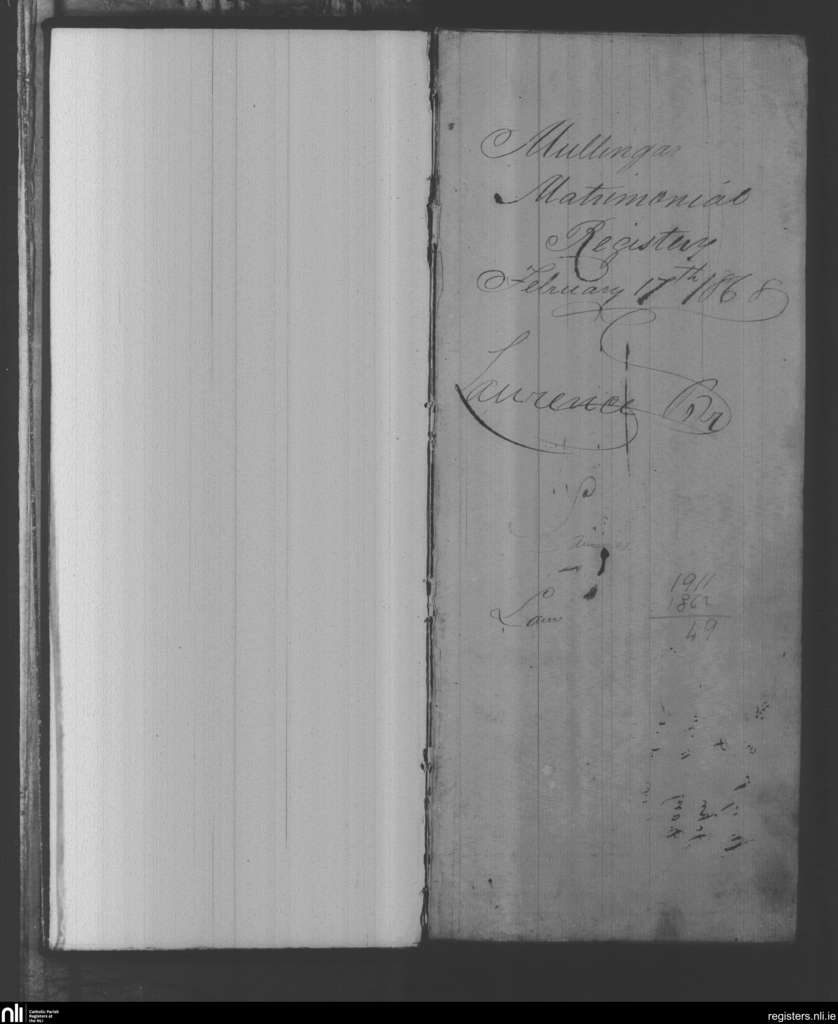 Mullingar
Matrimonial
Registery
February 17th 1868
Laurence
Law
1911
1862
49
nli
Catholic Parish
Registers at
the NLI
registers.nli.ie